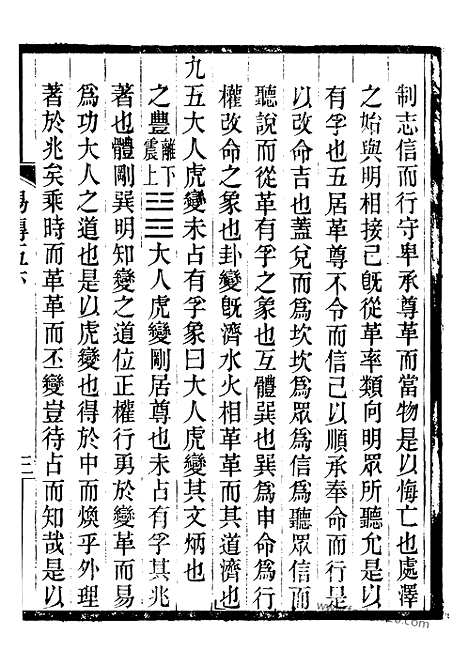 制志信而行守卑承尊革而當物是以悔亡也處澤
之始與明相接已旣從革率類向明眾所聽允是以
有孚也五居革尊不令而信己以順承奉命而行是
以改命吉也蓋兌而為坎坎為眾為信為聽眾信而
聽說而從革有孚之象也互體巽也巽為申命為行
權改命之象也卦變旣濟水火相革革而其道濟也
九五大人虎變未占有孚象曰大人虎變其文炳也
之豐離下震上☲☳大人虎變剛居尊也未占有孚其兆
著也體剛巽明知變之道位正權行勇於變革而易
為功大人之道也是以虎變也得於中而煥乎外理
著於兆矣乘時而革革而丕變豈待占而知哉是以
易傳五下
三